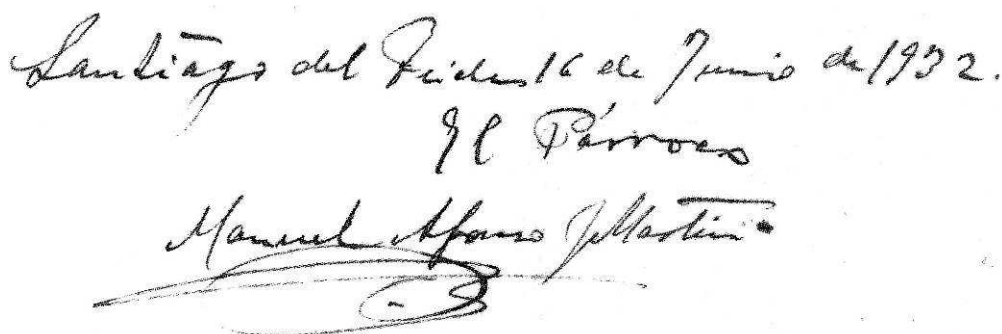 Santiago del Teide 16 de Junio de 1932.
El Párroco
Manuel Afonso y Martín